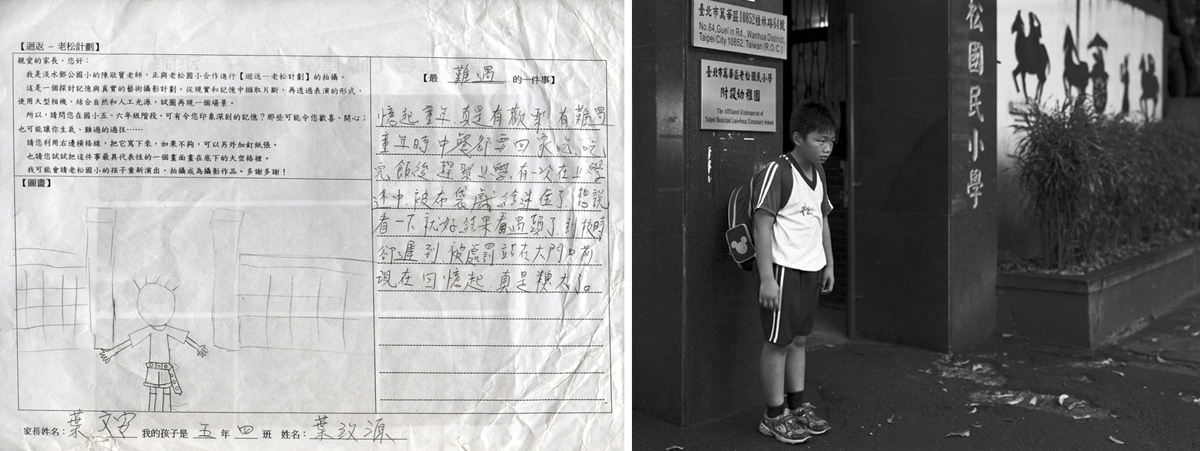 【迴返－老松計劃】
親愛的家長，您好：
我是淡水鄧公國小的陳敬寶老師，正與老松國小合作進行【迴返—老松計劃】的拍攝。
這是一個探討記憶與真實的藝術攝影計劃，從現實和記憶中擷取片斷，再透過表演的形式，
使用大型相機，結合自然和人工光源，試圖再現一個場景。
所以，請問您在國小五、六年級階段，可有令您印象深刻的記憶？那些可能令您歡喜、開心；
也可能讓你生氣、難過的過往……
請您利用右邊橫格線，把它寫下來，如果不夠，可以另外加釘紙張。
也請您試試把這件事最具代表性的一個畫面畫在底下的大空格裡。
我可能會請老松國小的孩子重新演出，拍攝成為攝影作品。多謝多謝！
【圖畫】
【最 難過 的一件事】
憶起童年真是有歡樂有難過
童年時中餐都要回家吃，吃
完飯後趕緊上學，有一次在上學
途中被布袋戲給迷住了，想說
看一下就好結果看過頭了，到校時
卻遲到被處罰站在大門口前
現在回憶起真是糗大了。
家長姓名：葉文安 我的孩子是 五 年 四 班 姓名：葉致源
臺北市萬華區10852桂林路64號
No.64,Guei in Rd., Wanhua District,
Taipei City 10852, Taiwan (R.O.C.)
臺北市萬華區老松國民小學
附設幼稚園
The Affiliated Kindergarten of
Taipei Municipal Lao-Song Elementary School
松國民小學